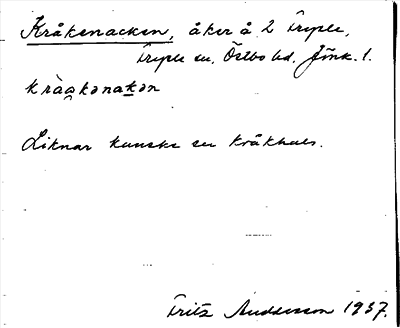 Kråkenacken, åker å 2 Triple,
Triple sn, Östbo hd, Jönk. l.
kràgkənakən
Liknar kanske en kråkhals.
Fritz Andersson 1937.